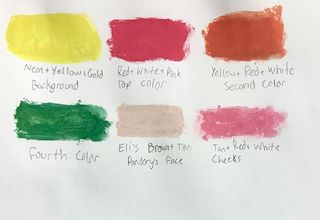 Neon + Yellow + Gold
Background
Red + White + Pink
Top Color
Yellow + Red + White
Second Color
Fourth Color
Eli's Brown + Tan
Face
Tan + Red + White
Cheeks